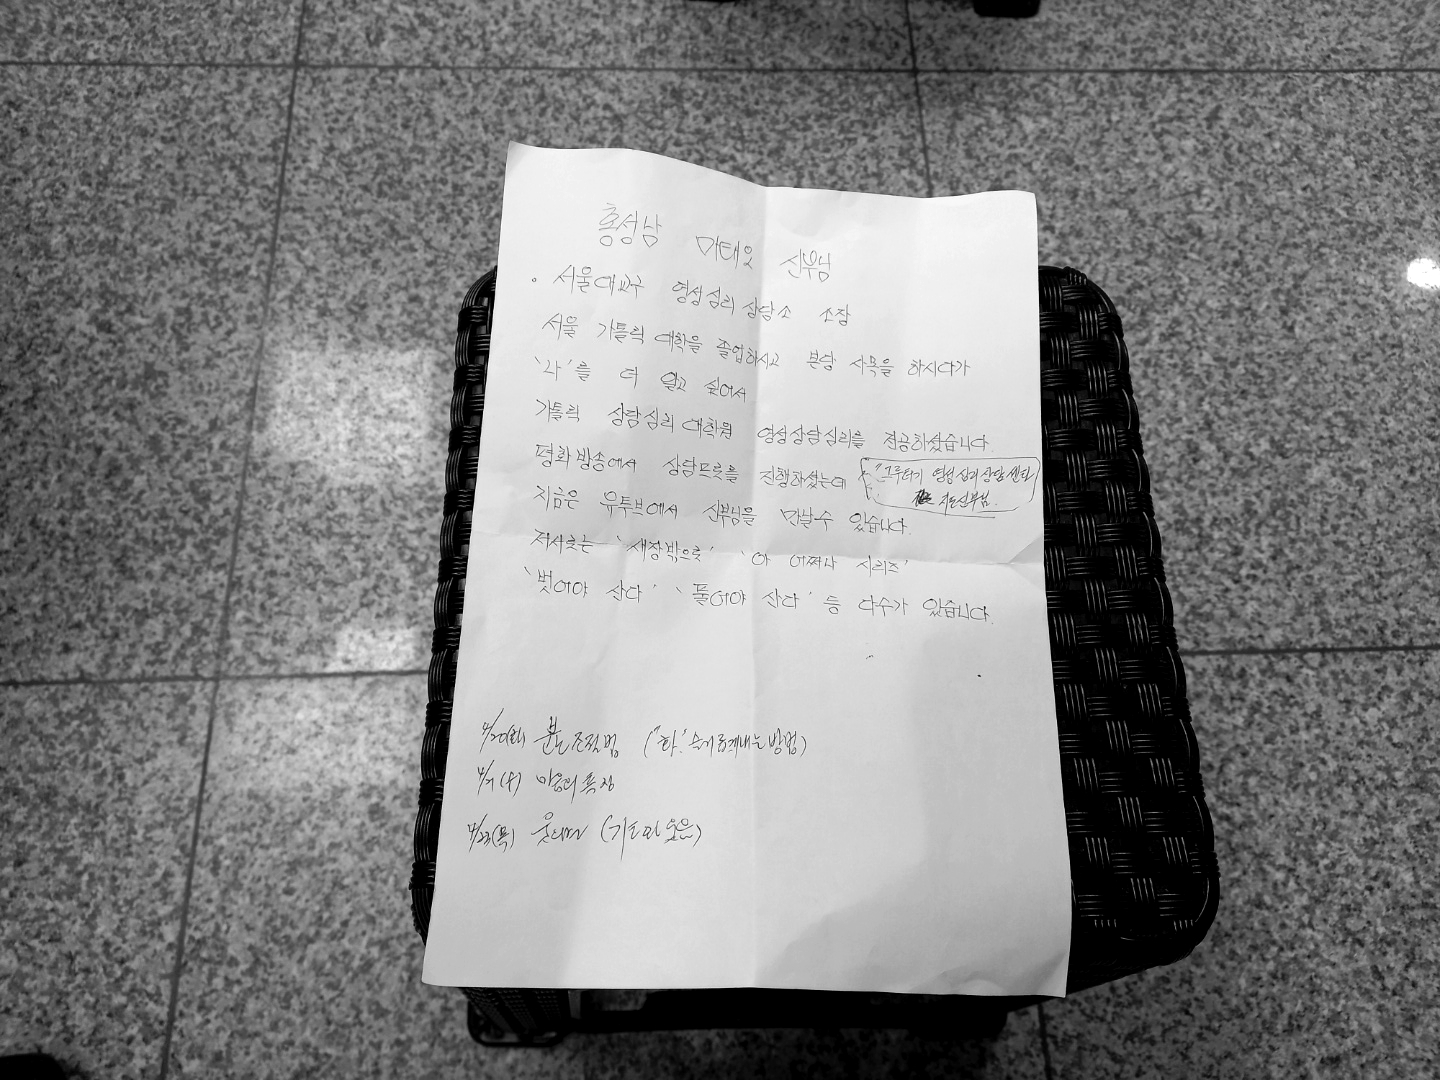 홍성남 마태오 신부님
。서울대교구 영성심리상담소 소장
서울 가톨릭 대학을 졸업하시고 본당 사목을 하시다가
'나'를 더 알고 싶어서
가톨릭 상담심리대학원 영성상담심리를 전공하셨습니다.
평화방송에서 상담프로를 진행하셨는데
"그루터기 영성심리상담센타
지도신부님.
지금은 유투브에서 신부님을 만날수 있습니다.
저서로는 '새장밖으로' '아 어쩌나 시리즈'
'벗어야 산다' '풀어야 산다' 등 다수가 있습니다.
분노조절법 ("화" 슬기롭게내는방법)
(수) 마음의
(목) (기도와 웃음)